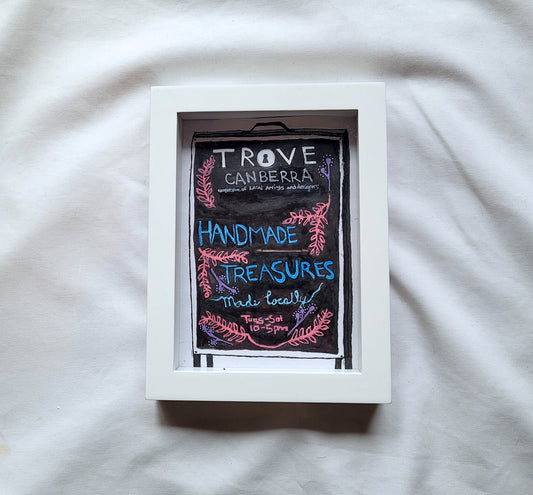 TROVE
CANBERRA
of Local Artists and designers
HANDMADE
TREASURES
Made locally
Tues-Sat
10-5pm